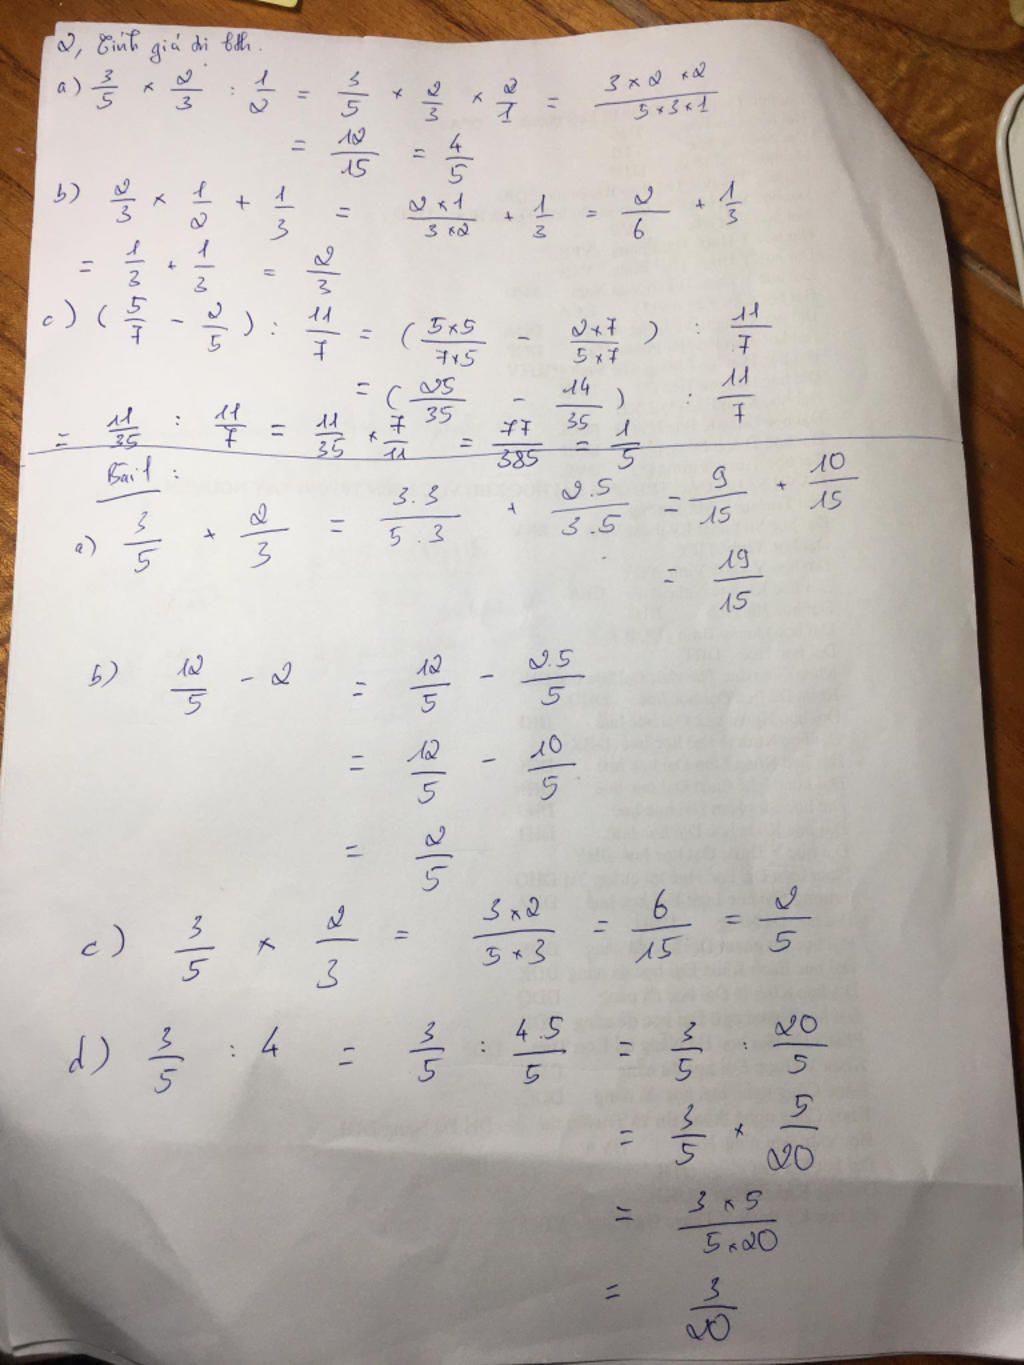 2, Tính giá trị bth.
a) 3/5 × 2/3 : 1/2 = 3/5 × 2/3 × 2/1 = (3 × 2 × 2)/(5 × 3 × 1)
= 12/15 = 4/5
b) 2/3 × 1/2 + 1/3 = (2 × 1)/(3 × 2) + 1/3 = 2/6 + 1/3
= 1/3 + 1/3 = 2/3
c) (5/7 - 2/5) : 11/7 = ((5×5)/(7×5) - (2×7)/(5×7)) : 11/7
= (25/35 - 14/35) : 11/7
= 11/35 : 11/7 = 11/35 × 7/11 = 77/385 = 1/5
Bài 1 :
a) 3/5 + 2/3 = (3.3)/(5.3) + (2.5)/(3.5) = 9/15 + 10/15
= 19/15
b) 12/5 - 2 = 12/5 - (2.5)/5
= 12/5 - 10/5
= 2/5
c) 3/5 × 2/3 = (3×2)/(5×3) = 6/15 = 2/5
d) 3/5 : 4 = 3/5 : (4.5)/5 = 3/5 : 20/5
= 3/5 × 5/20
= (3 × 5)/(5×20)
= 3/20